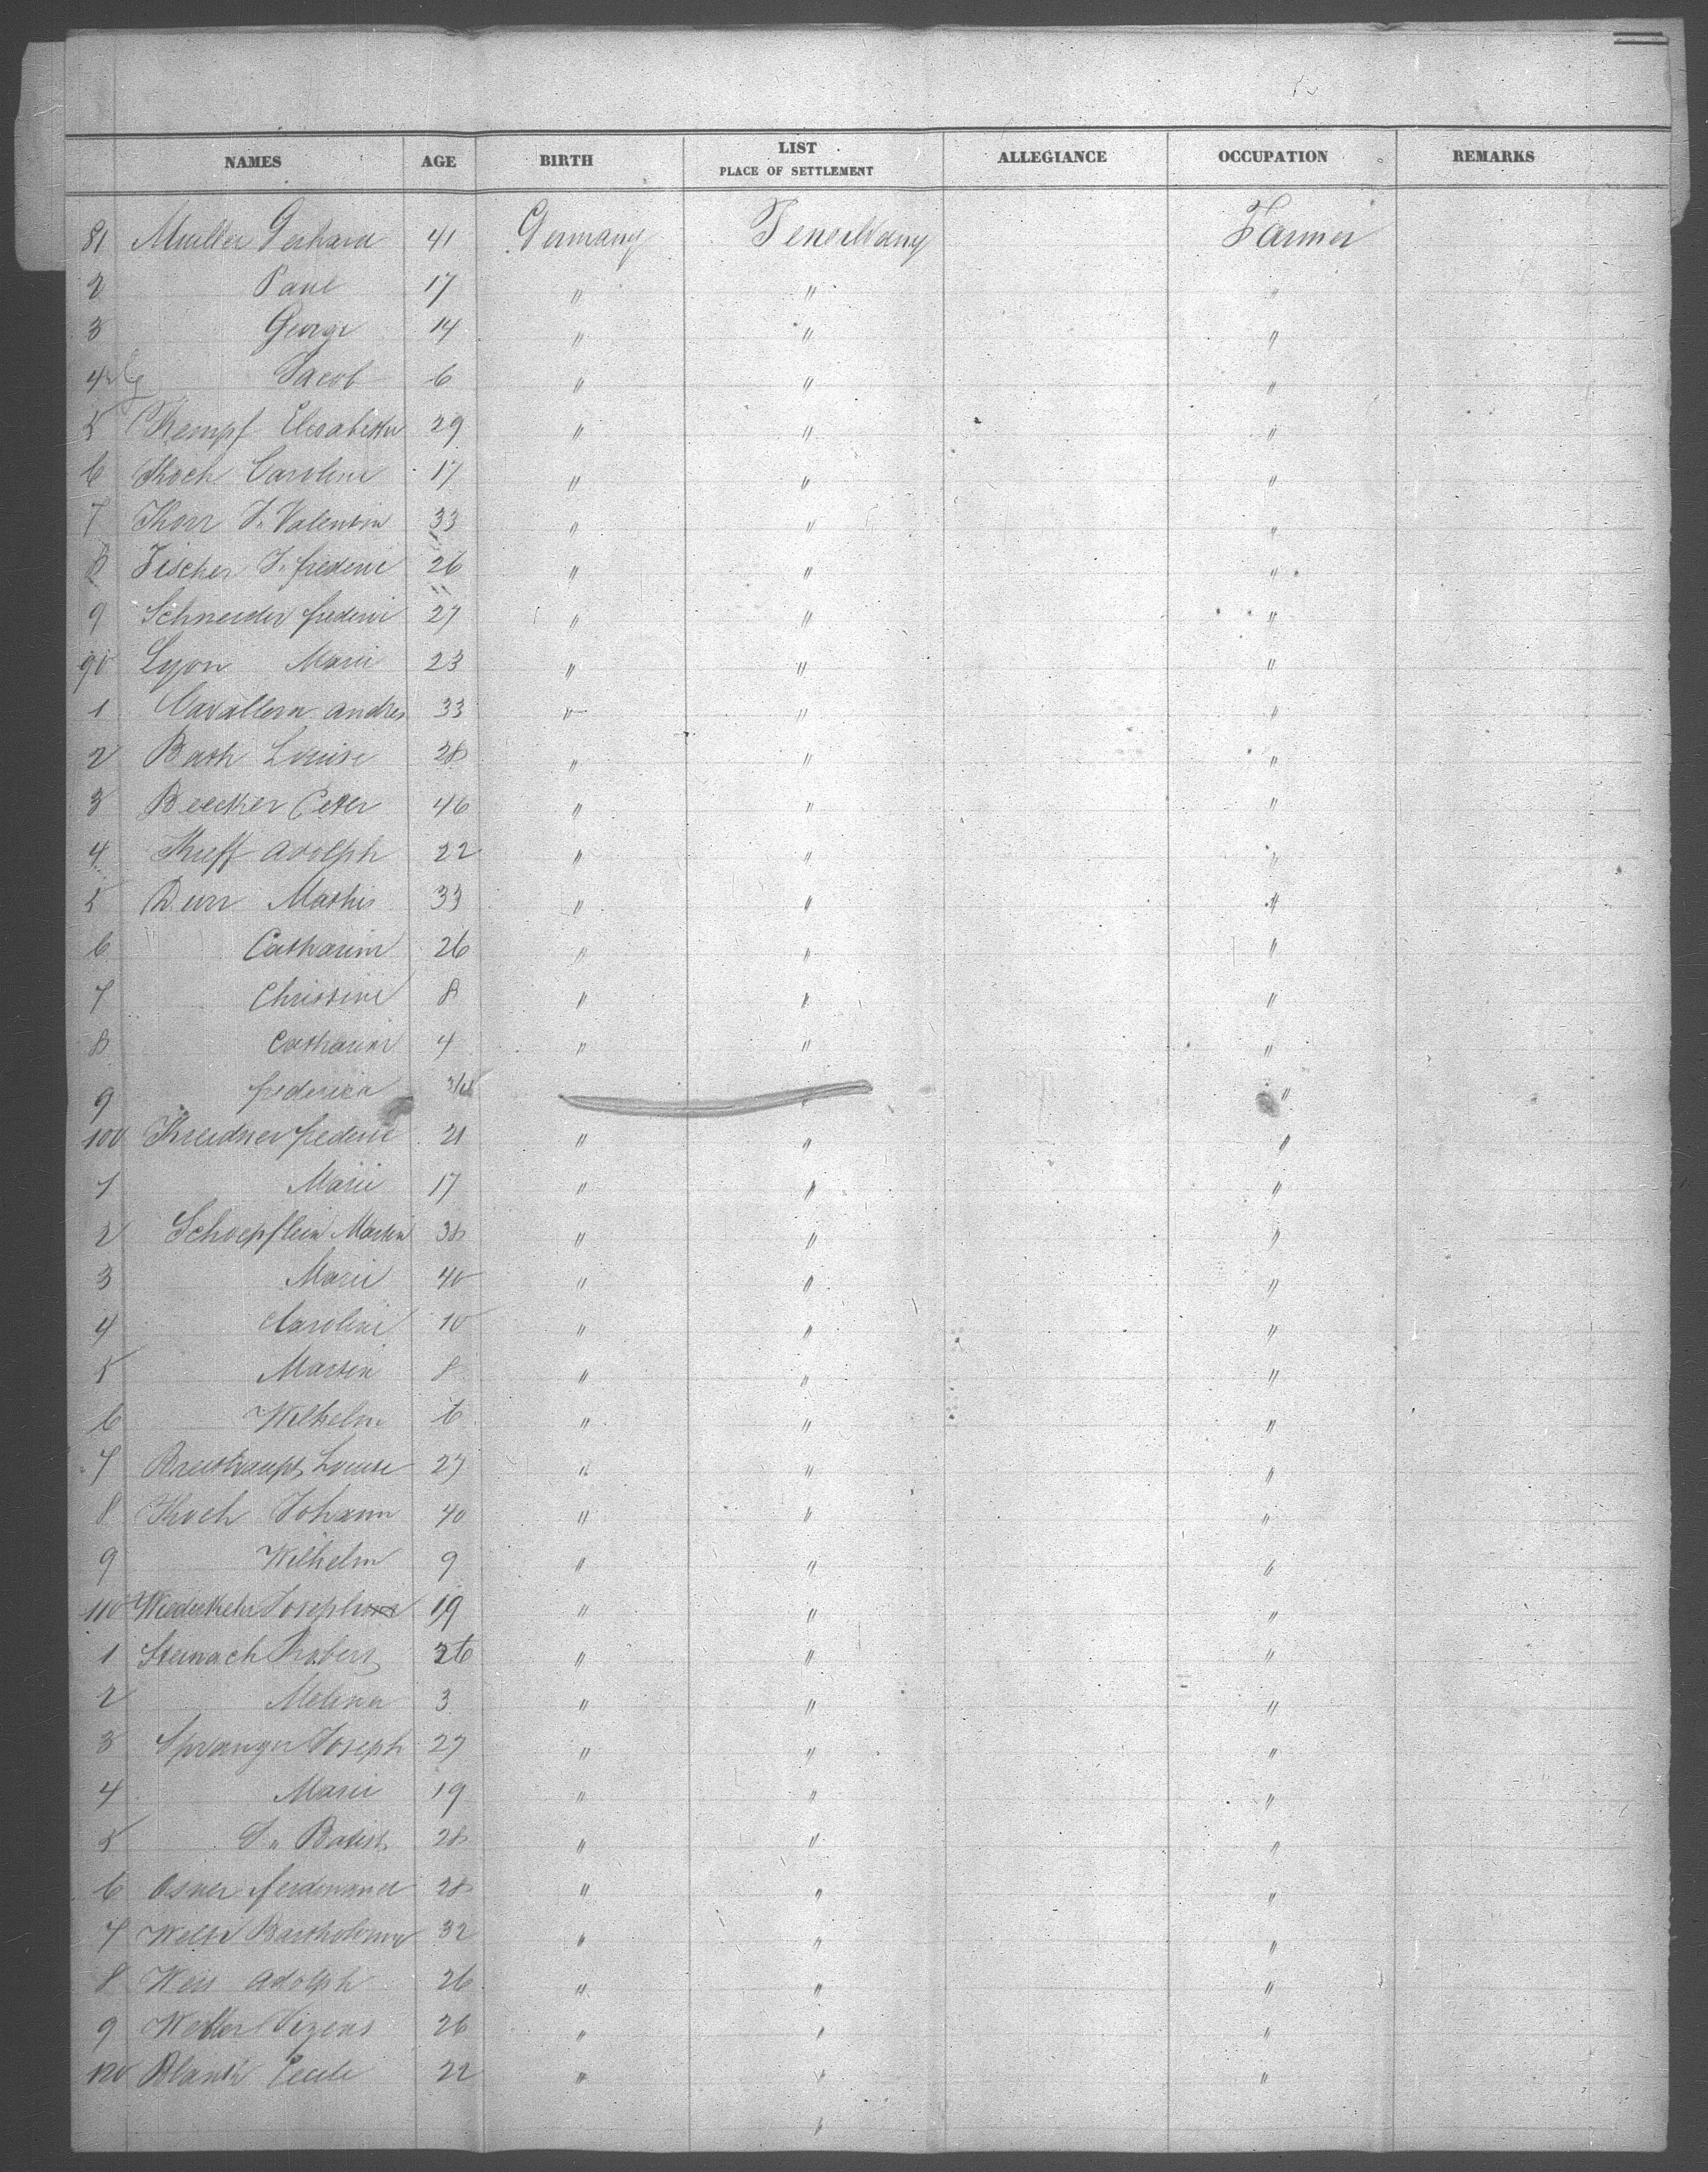 NAMES AGE BIRTH LIST PLACE OF SETTLEMENT ALLEGIANCE OCCUPATION REMARKS
81 Muller Gerhard 41 Germany Farmer
2 Paul 17 " " "
3 George 14 " " "
4 Jacob 6 " " "
5 Kempf 29 " " "
6 Koch Caroline 17 " " "
7 Korr J. Valentin 33 " " "
8 Fischer J. frederic 26 " " "
9 Schneider frederic 27 " " "
90 Lyon Marie 23 " " "
1 Andres 33 " " "
2 Bath Louise 28 " " "
3 Beecker Peter 46 " " "
4 Kieff Adolph 22 " " "
5 Durr Mathis 33 " " "
6 Catharine 26 " " "
7 Christine 8 " " "
8 Catharine 4 " " "
9 frederica "
100 Kreidner frederic 21 " " "
1 Marie 17 " " "
2 Schoepflein Martin 38 " " "
3 Marie 40 " " "
4 Caroline 10 " " "
5 Martin 8 " " "
6 Wilhelm 6 " " "
7 Breithaupt Louise 27 " " "
8 Koch Johann 40 " " "
9 Wilhelm 9 " " "
110 Wiederkehr Joseph 19 " " "
1 Steinach Robert 26 " " "
2 Melina 3 " " "
3 Spranger Joseph 27 " " "
4 Marie 19 " " "
5 J. Batist 28 " " "
6 Osner ferdinand 28 " " "
7 32 " " "
8 Weis Adolph 26 " " "
9 26 " " "
120 Cecile 22 " " "
"